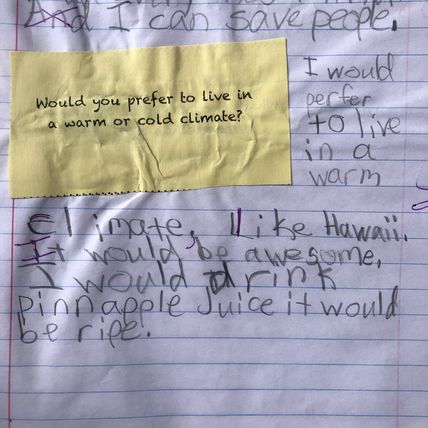 And I can save people.
Would you prefer to live in
a warm or cold climate?
I would
perfer
to live
in a
warm
Climate, Like Hawaii.
It would be awesome,
I would drink
pinnapple Juice it would
be ripe!